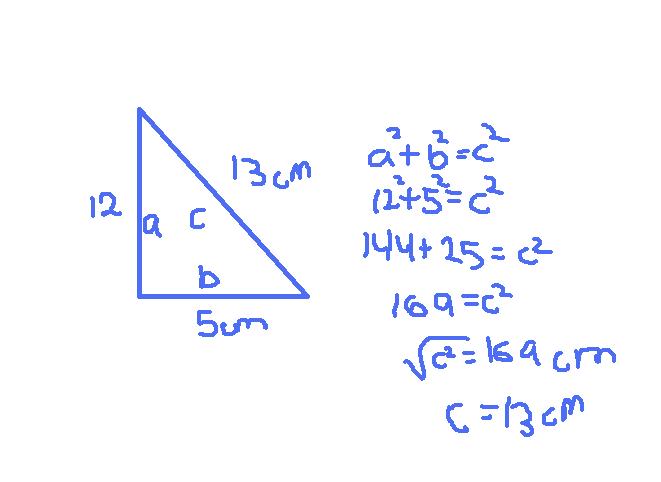 13cm
12
a
c
b
5cm
a²+b²=c²
12²+5²=c²
144+25=c²
169=c²
√c²=169cm
c=13cm